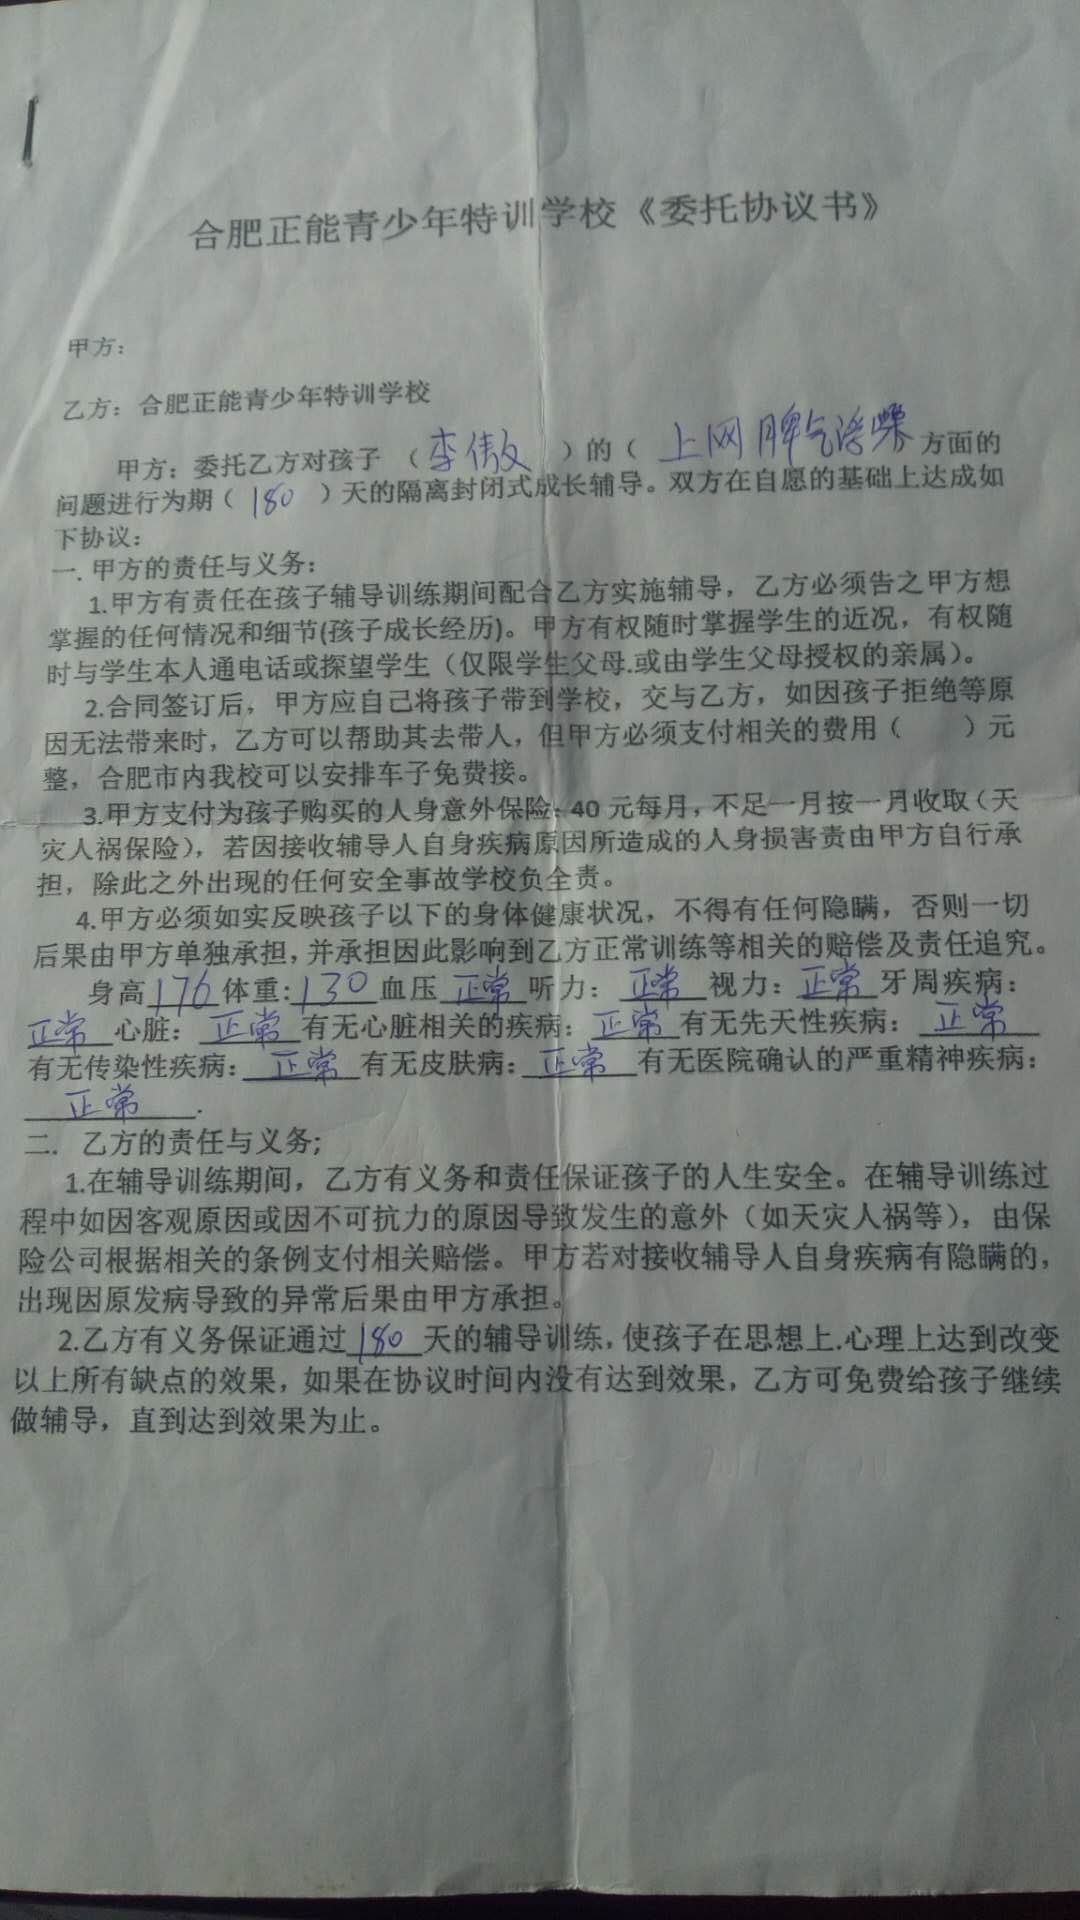 合肥正能青少年特训学校《委托协议书》
甲方：
乙方：合肥正能青少年特训学校
甲方：委托乙方对孩子（李傲）的（上网脾气浮躁方面的
问题进行为期（180）天的隔离封闭式成长辅导。双方在自愿的基础上达成如
下协议：
一. 甲方的责任与义务：
1.甲方有责任在孩子辅导训练期间配合乙方实施辅导，乙方必须告之甲方想
掌握的任何情况和细节(孩子成长经历)。甲方有权随时掌握学生的近况，有权随
时与学生本人通电话或探望学生（仅限学生父母.或由学生父母授权的亲属）。
2.合同签订后，甲方应自己将孩子带到学校，交与乙方，如因孩子拒绝等原
因无法带来时，乙方可以帮助其去带人，但甲方必须支付相关的费用（　　）元
整，合肥市内我校可以安排车子免费接。
3.甲方支付为孩子购买的人身意外保险：40元每月，不足一月按一月收取（天
灾人祸保险），若因接收辅导人自身疾病原因所造成的人身损害责由甲方自行承
担，除此之外出现的任何安全事故学校负全责。
4.甲方必须如实反映孩子以下的身体健康状况，不得有任何隐瞒，否则一切
后果由甲方单独承担，并承担因此影响到乙方正常训练等相关的赔偿及责任追究。
身高176体重:130血压正常听力：正常视力：正常牙周疾病：
正常心脏：正常有无心脏相关的疾病：正常有无先天性疾病：正常
有无传染性疾病：正常有无皮肤病：正常有无医院确认的严重精神疾病：
正常.
二. 乙方的责任与义务;
1.在辅导训练期间，乙方有义务和责任保证孩子的人生安全。在辅导训练过
程中如因客观原因或因不可抗力的原因导致发生的意外（如天灾人祸等），由保
险公司根据相关的条例支付相关赔偿。甲方若对接收辅导人自身疾病有隐瞒的，
出现因原发病导致的异常后果由甲方承担。
2.乙方有义务保证通过180天的辅导训练，使孩子在思想上.心理上达到改变
以上所有缺点的效果，如果在协议时间内没有达到效果，乙方可免费给孩子继续
做辅导，直到达到效果为止。